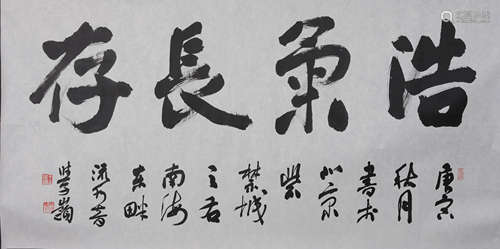 浩氣長存
庚寅
秋月
書於
北京
紫
禁城
之右
南海
東畔
流水音